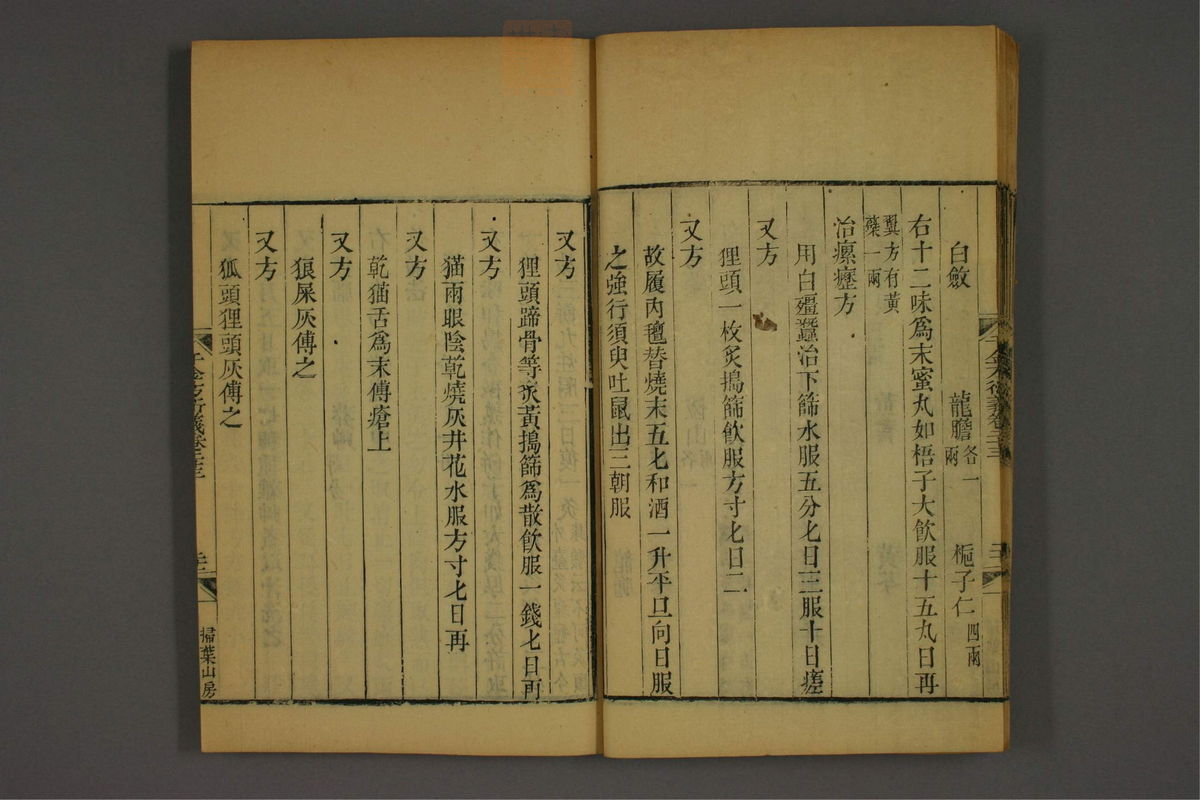 白斂 龍膽各一兩 梔子仁四兩
右十二味爲末蜜丸如梧子大飲服十五丸日再
翼方有黃
蘗一兩
治瘰癧方
用白殭蠶治下篩水服五分匕日三服十日瘥
又方
狸頭一枚炙搗篩飲服方寸匕日二
又方
故履內氊替燒末五匕和酒一升平旦向日服
之強行須臾吐鼠出三朝服
又方
狸頭蹄骨等炙黃搗篩爲散飲服一錢匕日再
又方
猫兩眼陰乾燒灰井花水服方寸匕日再
又方
乾猫舌爲末傅瘡上
又方
狼屎灰傅之
又方
狐頭狸頭灰傅之
千金方衍義卷二十三
掃葉山房